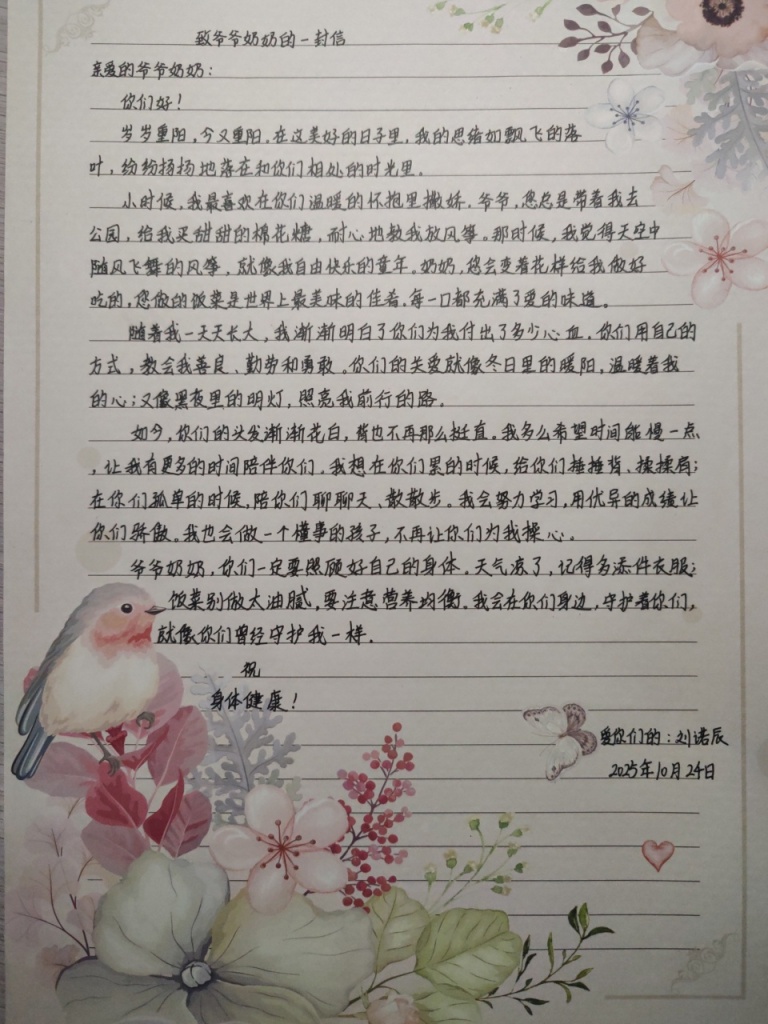 致爷爷奶奶的一封信
亲爱的爷爷奶奶：
你们好！
岁岁重阳，今又重阳，在这美好的日子里，我的思绪如飘飞的落
叶，纷纷扬扬地落在和你们相处的时光里。
小时候，我最喜欢在你们温暖的怀抱里撒娇。爷爷，您总是带着我去
公园，给我买甜甜的棉花糖，耐心地教我放风筝。那时候，我觉得天空中
随风飞舞的风筝，就像我自由快乐的童年。奶奶，您会变着花样给我做好
吃的，您做的饭菜是世界上最美味的佳肴，每一口都充满了爱的味道。
随着我一天天长大，我渐渐明白了你们为我付出了多少心血。你们用自己的
方式，教会我善良、勤劳和勇敢。你们的关爱就像冬日里的暖阳，温暖着我
的心；又像黑夜里的明灯，照亮我前行的路。
如今，你们的头发渐渐花白，背也不再那么挺直。我多么希望时间能慢一点
，让我有更多的时间陪伴你们。我想在你们累的时候，给你们捶捶背、揉揉肩；
在你们孤单的时候，陪你们聊聊天、散散步。我会努力学习，用优异的成绩让
你们骄傲。我也会做一个懂事的孩子，不再让你们为我操心。
爷爷奶奶，你们一定要照顾好自己的身体。天气凉了，记得多添件衣服；
饭菜别做太油腻，要注意营养均衡。我会在你们身边，守护着你们，
就像你们曾经守护我一样。
祝
身体健康！
爱你们的：刘诺辰
2025年10月24日